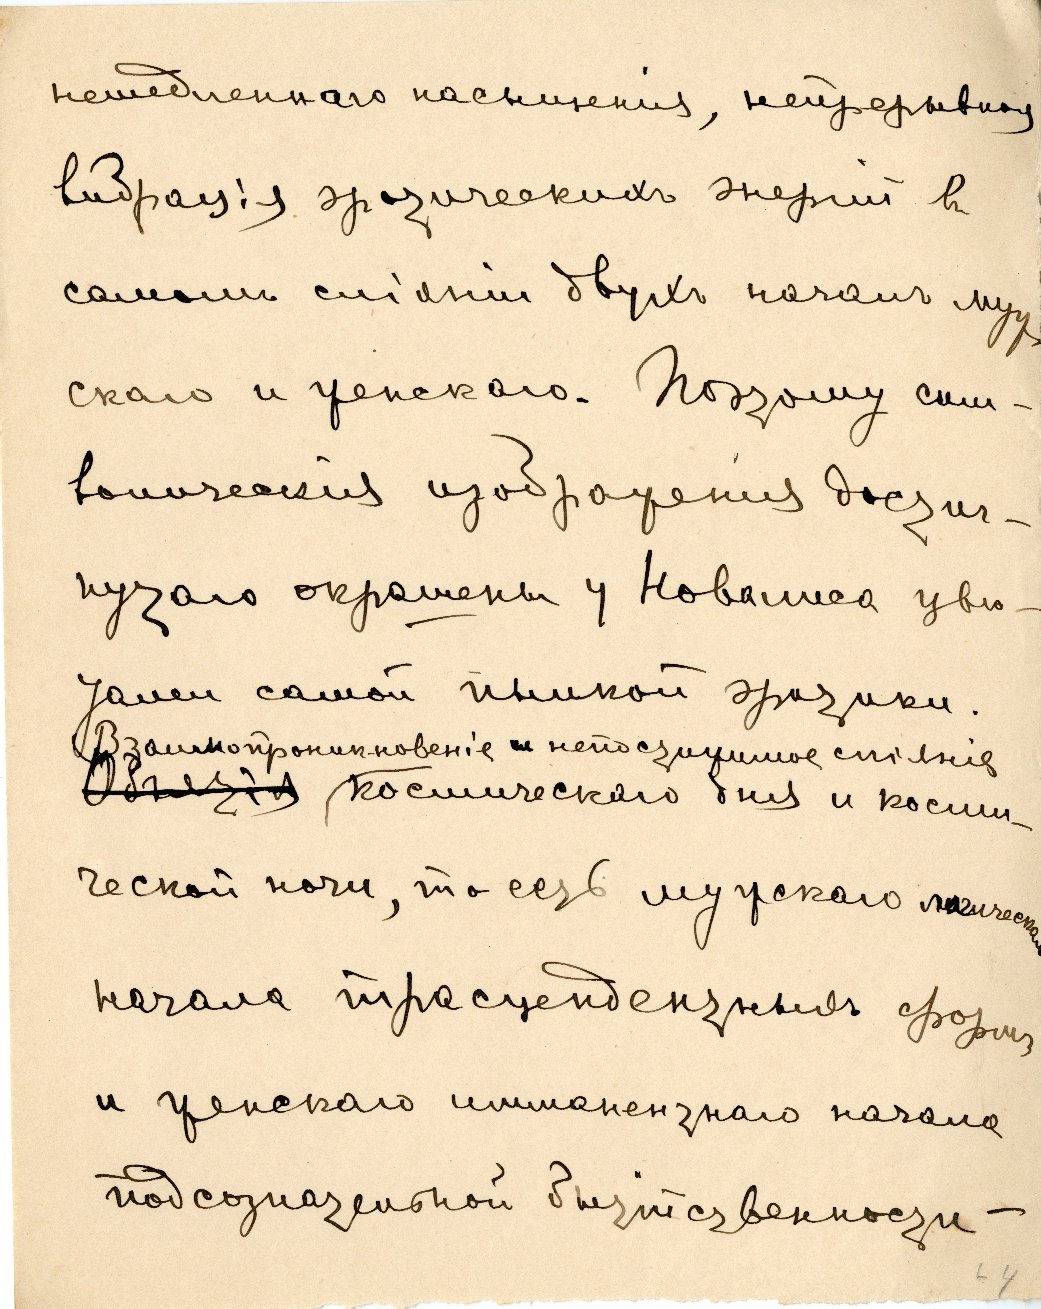 немедленнаго насыщенія, непрерывная
вибрація эротическихъ энергій в
самомъ сліяніи двухъ началъ муж
скаго и женскаго. Поэтому сим-
волическія изображенія достиг-
нутаго окрашены у Новалиса цвѣ-
тами самой пылкой эротики.
Взаимопроникновеніе и непостижимое сліяніе
Объятія космическаго дня и косми-
ческой ночи, то есть мужскаго логическаго
начала трасцендентныхъ формъ
и женскаго имманентнаго начала
подсознательной бытійственности –
44